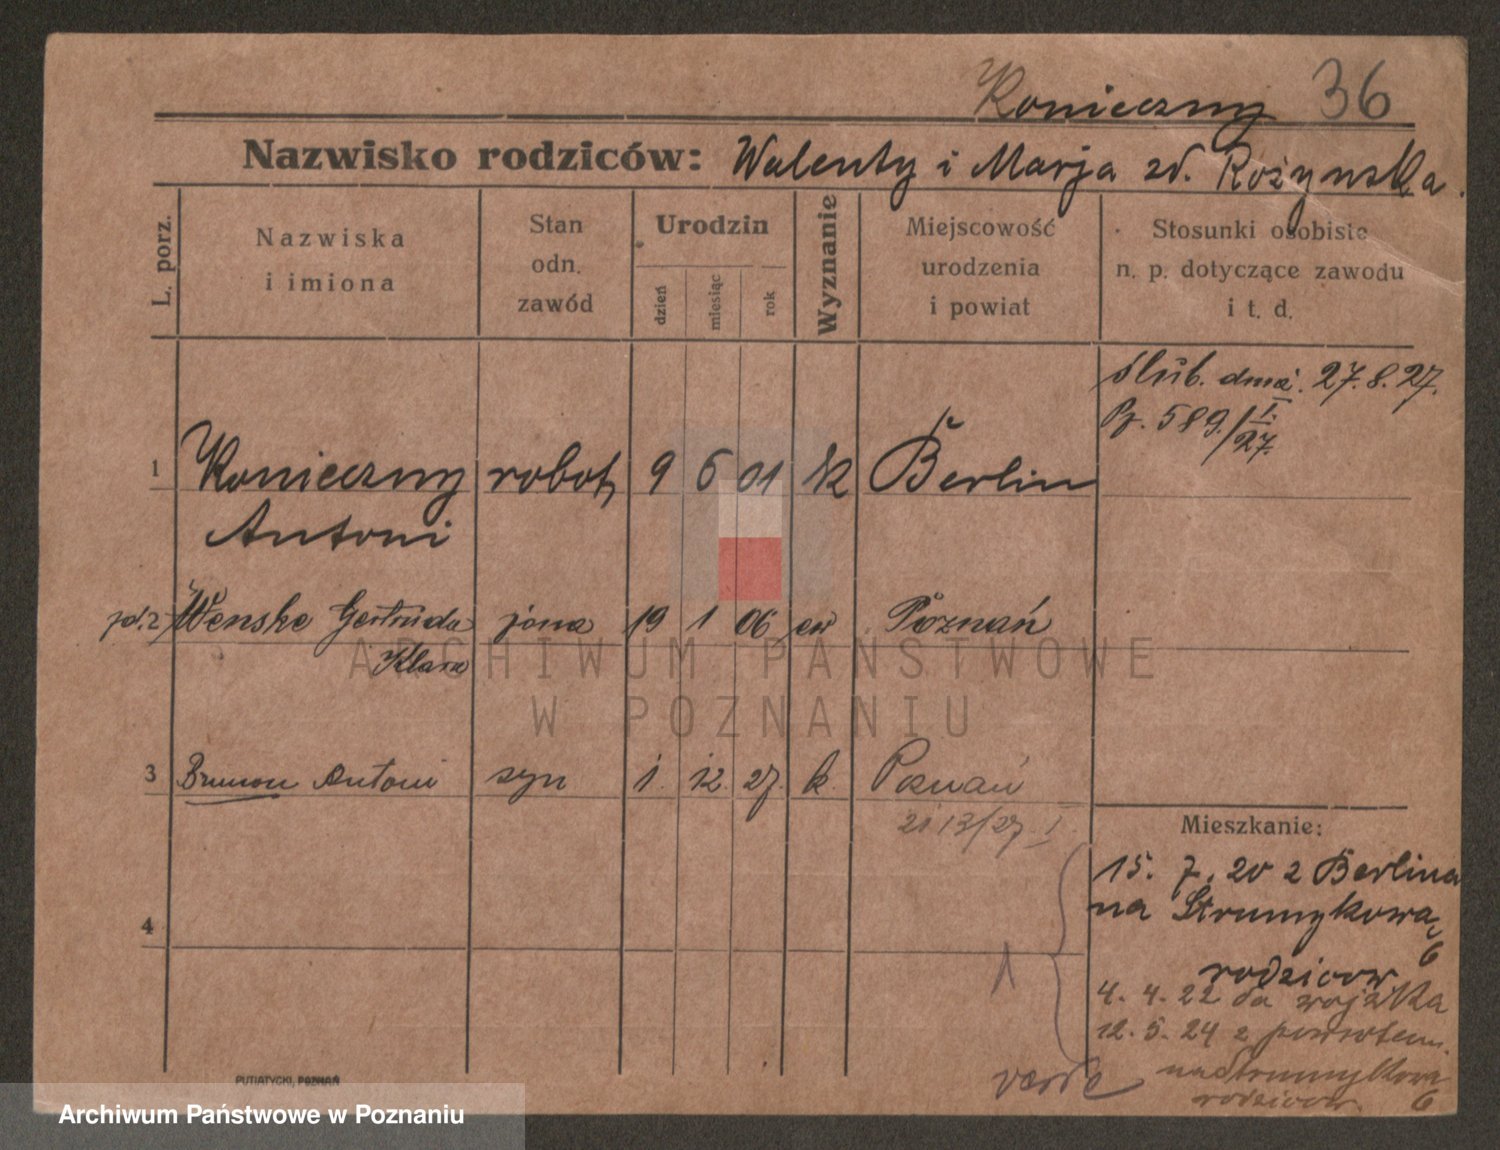 Konieczny 36
Nazwisko rodziców: Walenty i Marja zd. Rożynska.
L. porz.
Nazwiska
i imiona
Stan
odn.
zawód
Urodzin
dzień
miesiąc
rok
Wyznanie
Miejscowość
urodzenia
i powiat
Stosunki osobiste
n. p. dotyczące zawodu
i t. d.
ślub. dnia 27.8.27.
Pz. 589/I.
27.
1 Konieczny robot 9 6 01 k Berlin
Antoni
2 Wenske Gertruda żona 19 1 06 ew Poznań
Klara
3 Brunon Antoni syn 1. 12. 27. k. Poznań
2113/27 I
Mieszkanie:
15. 7. 20 z Berlina
na Strumykową
6
4
rodzicow
1
4. 4. 22 do wojska
12. 5. 24 z powrotem.
na Strumykowa
rodzicow. 6
verte
PUTIATYCKI, POZNAŃ
ARCHIWUM PAŃSTWOWE
W POZNANIU
Archiwum Państwowe w Poznaniu